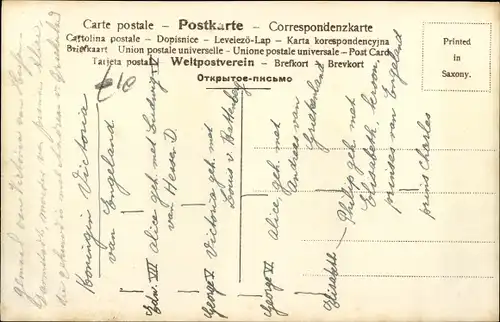 Carte postale – Postkarte – Correspondenzkarte
Cartolina postale – Dopisnice – Levelező-Lap – Karta korespondencyjna
Briefkaart Union postale universelle – Unione postale universale – Post Card
Tarjeta postal Weltpostverein – Brefkort – Brevkort
Открытое письмо
Printed
in
Saxony.
van Hessen
Koningin Victoria
van Engeland
Edw. VII Alice geh. met Ludwig IV
van Hessen D.
George V Victoria geh. met
Louis v. Battenberg
George VI Alice geh. met
Andreas van
Griekenland
Elisabeth – Philip geh met
Elisabeth, kroon
prinses van Engeland
prins Charles